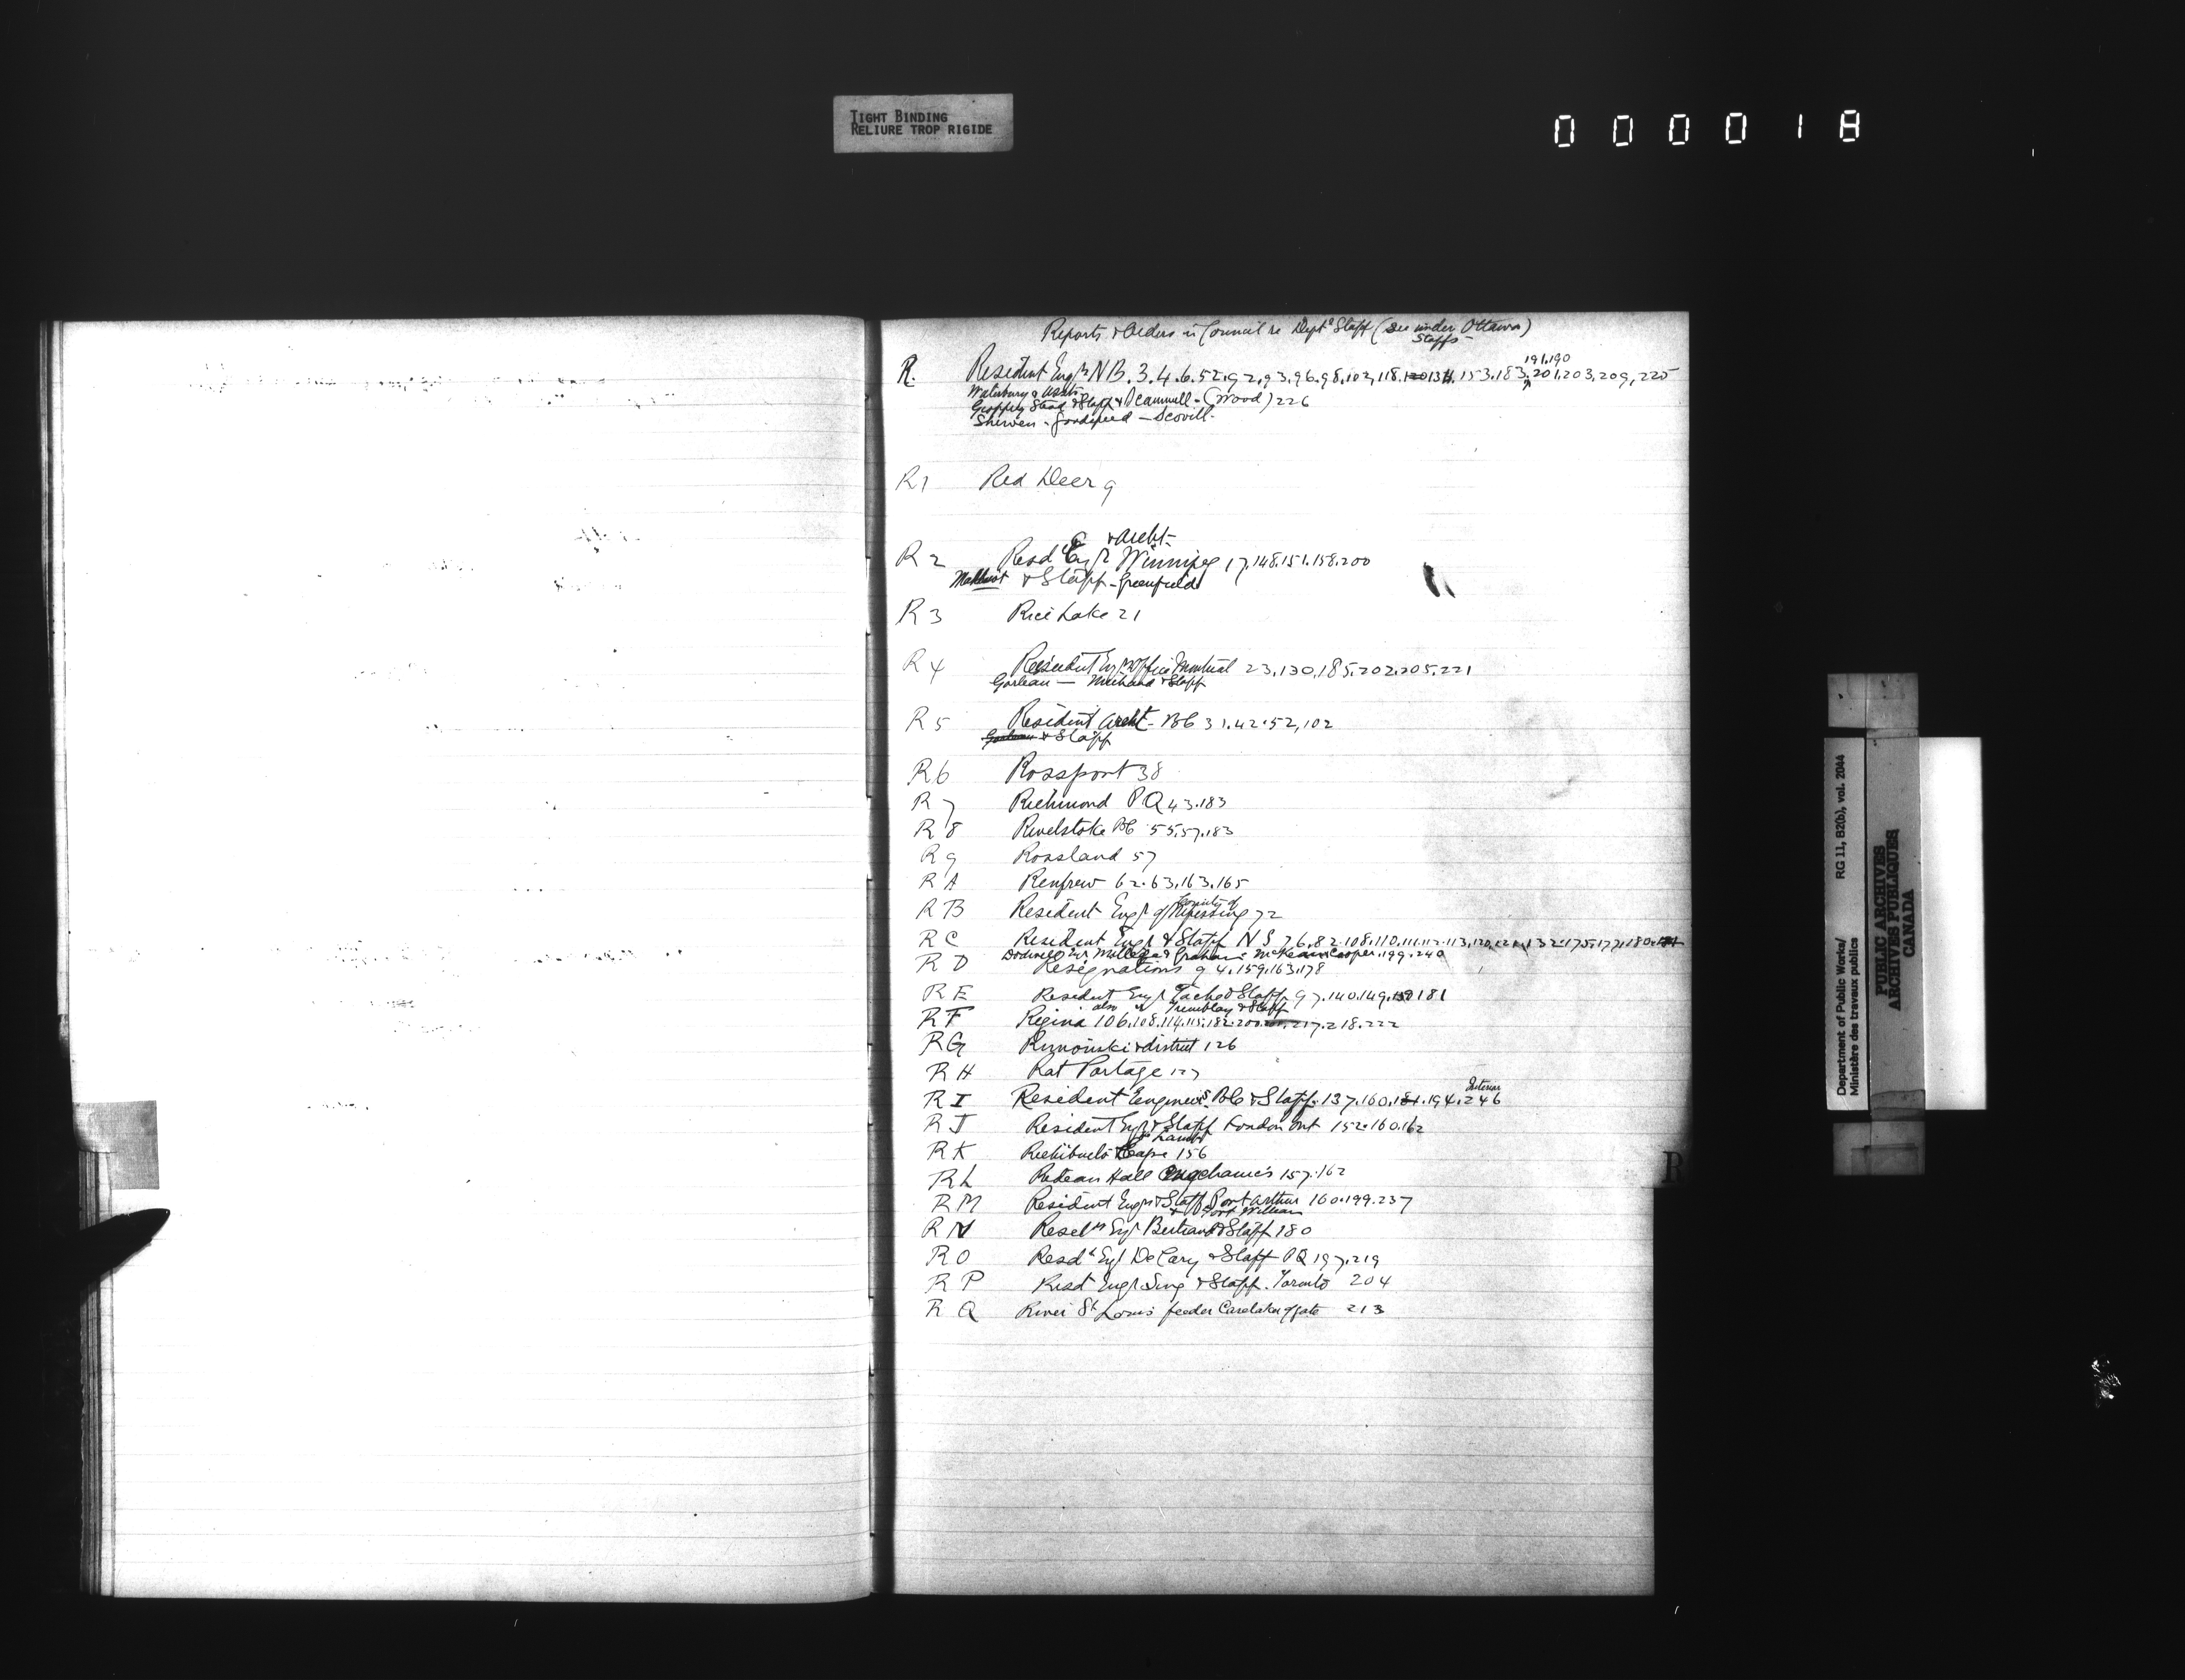 TIGHT BINDING
RELIURE TROP RIGIDE
000018
Reports & Orders in Council re Dept'l Staff (see under Ottawa)
Staffs -
191.190
R. Resident Engr NB. 3. 4. 6. 52. 92. 93. 96. 98. 102, 118. 120 134. 153. 183. 201. 203. 209, 225
Waterbury & Assts
Geoffrey Stead & Staff & Scammell - (Wood) 226
Shewen - Goodspeed - Scovill -
R1 Red Deer 9
& Archt -
R2 Resd Engr Winnipeg 17. 148. 151. 158. 200
& Staff - Greenfield
R3 Rice Lake 21
R4 Resident Engrs Office Montreal 23, 130, 185. 202. 205. 221
Michaud & Staff
R5 Resident Archt - BC 31. 42. 52, 102
& Staff
R6 Rossport 38
R7 Richmond PQ 43. 183
R8 Revelstoke BC 55. 57. 183
R9 Rossland 57
RA Renfrew 62. 63. 163. 165
County of
RB Resident Engr of Nipissing 72
RC Resident Engr & Staff NS 76. 82. 108. 110. 111. 112. 113. 120. 121. 132. 175. 177. 180. 181
Dodwell McKean Cooper. 199. 240
RD Resignations 94. 159. 163. 178
RE Resident Engr Taché & Staff 97. 140. 149. 159 181
also Tremblay & Staff
RF Regina 106. 108. 114. 115. 182. 200. 201. 217. 218. 222
RG Rimouski & district 126
RH Rat Portage 127
Interior
RI Resident Engineers BC & Staff. 137. 160. 184. 194. 246
RJ Resident Engr & Staff London Ont 152. 160. 162
Lamb
RK Richibucto Cape 156
RL Rideau Hall Mechanics 157. 162
RM Resident Engr & Staff Port Arthur 160. 199. 237
& Fort William
RN Resdt Engr Bertrand & Staff 180
RO Resdt Engr DeCary & Staff PQ 197. 219
RP Resdt Engr Sing & Staff. Toronto 204
RQ River St Louis feeder Caretaker of gate 213
R
Department of Public Works/
Ministère des travaux publics
RG 11, B2(b), vol. 2044
PUBLIC ARCHIVES
ARCHIVES PUBLIQUES
CANADA